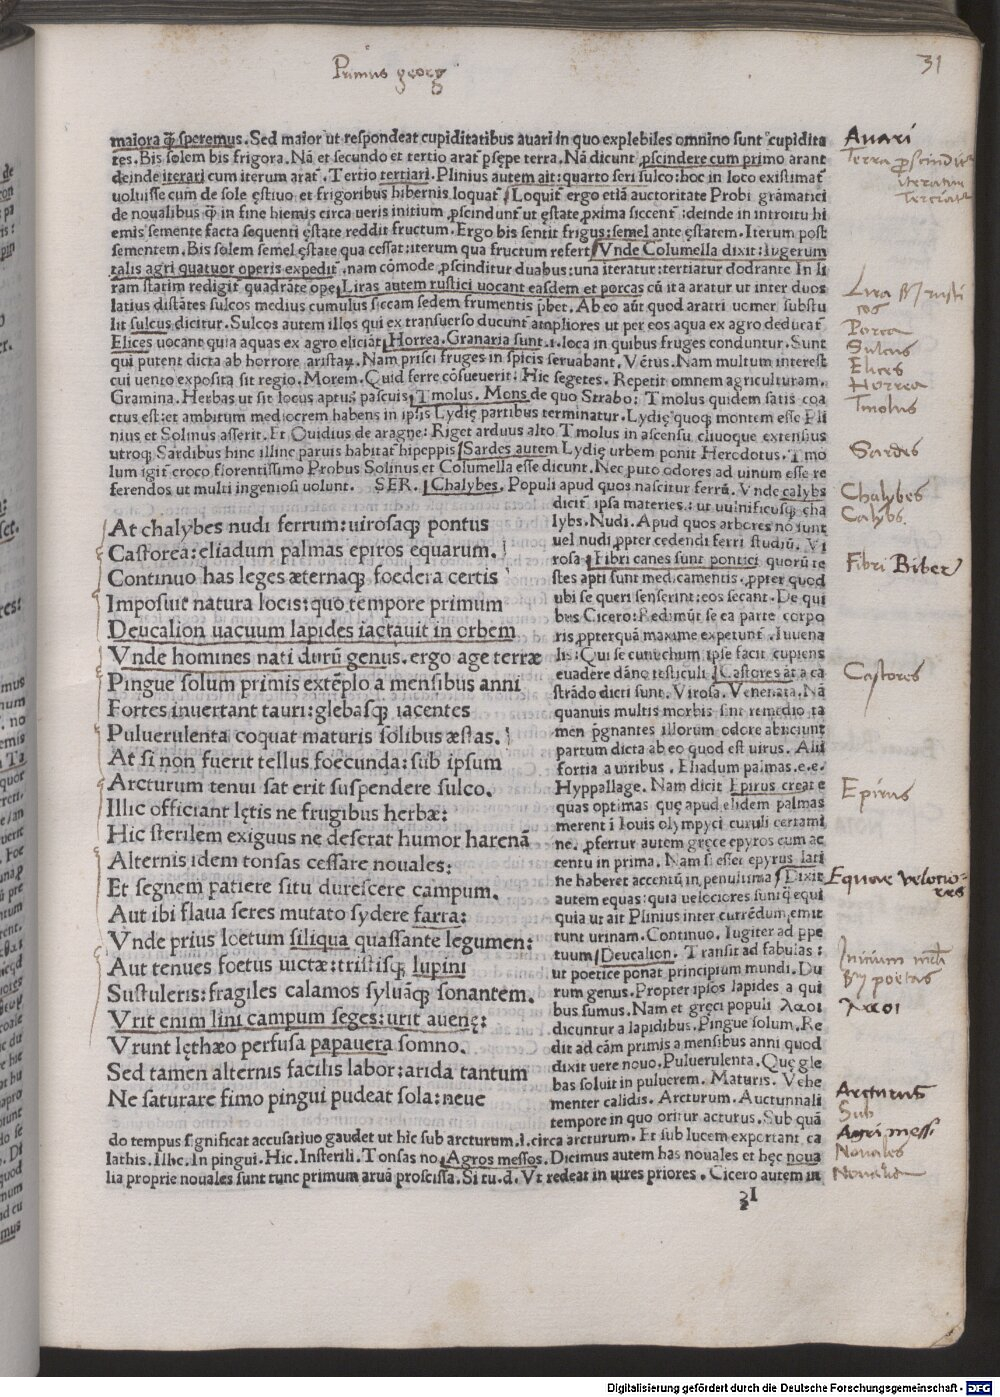 Primus georg
31
maiora q̃ speremus. Sed maior ut respondeat cupiditatibus auari in quo explebiles omnino sunt cupidita
tes. Bis solem bis frigora. Nã et secundo et tertio arat᷑ psępe terra. Nã dicunt ꝓscindere cum primo arant
deinde iterari cum iterum arat᷑. Tertio tertiari. Plinius autem ait: quarto seri sulco: hoc in loco existimat᷑
uoluisse cum de sole ęstiuo et frigoribus hibernis loquat᷑. Loquit᷑ ergo etiã auctoritate Probi grãmatici
de noualibus q̃ in fine hiemis circa ueris initium ꝓscindunt᷑ ut ęstate ꝓxima siccent᷑: deinde in introitu hi
emis semente facta sequenti ęstate reddit fructum. Ergo bis sentit frigus: semel ante ęstatem. Iterum post
sementem. Bis solem semel ęstate qua cessat: iterum qua fructum refert. Vnde Columella dixit: Iugerum
talis agri quatuor operis expedit᷑. nam cõmode ꝓscinditur duabus: una iteratur: tertiatur dodrante In li
ram statim redigit᷑ quadrãte opę. Liras autem rustici uocant easdem et porcas cũ ita aratur ut inter duos
latius distãtes sulcos medius cumulus siccam sedem frumentis p̃bet. Ab eo aũt quod aratri uomer substu
lit sulcus dicitur. Sulcos autem illos qui ex transuerso ducunt᷑ ampliores ut per eos aqua ex agro deducat᷑
Elices uocant quia aquas ex agro eliciãt. Horrea. Granaria sunt. i. loca in quibus fruges conduntur. Sunt
qui putent dicta ab horrore aristaꝝ. Nam prisci fruges in spicis seruabant. Vẽtus. Nam multum interest
cui uento exposita sit regio. Morem. Quid ferre cõsueuerit: Hic segetes. Repetit omnem agriculturam.
Gramina. Herbas ut sit locus aptus pascuis. Tmolus. Mons de quo Strabo: Tmolus quidem satis coa
ctus est: et ambitum mediocrem habens in ipsis Lydię partibus terminatur. Lydię quoq̧ montem esse Pli
nius et Solinus asserit. Et Ouidius de aragne: Riget arduus alto Tmolus in ascensu cliuoque extensus
utroq̧ Sardibus hinc illinc paruis habitat᷑ hipeppis. Sardes autem Lydię urbem ponit Herodotus. Tmo
lum igit᷑ croco florentissimo Probus Solinus et Columella esse dicunt. Nec puto odores ad uinum esse re
ferendos ut multi ingeniosi uolunt. SER. Chalybes. Populi apud quos nascitur ferrũ. Vnde calybs
At chalybes nudi ferrum: uirosaq̧ pontus
Castorea: eliadum palmas epiros equarum.
Continuo has leges æternaq̧ foedera certis
Imposuit natura locis: quo tempore primum
Deucalion uacuum lapides iactauit in orbem
Vnde homines nati durũ genus. ergo age terræ
Pingue solum primis extẽplo a mensibus anni
Fortes inuertant tauri: glebasq̧ iacentes
Puluerulenta coquat maturis solibus æstas.
At si non fuerit tellus foecunda: sub ipsum
Arcturum tenui sat erit suspendere sulco.
Illic officiant lętis ne frugibus herbæ:
Hic sterilem exiguus ne deserat humor harenã
Alternis idem tonsas cessare nouales:
Et segnem patiere situ durescere campum.
Aut ibi flaua seres mutato sydere farra:
Vnde prius loetum siliqua quassante legumen:
Aut tenues foetus uictæ: tristisq̧ lupini
Sustuleris: fragiles calamos syluãq̧ sonantem.
Vrit enim lini campum seges: urit auenę:
Vrunt lęthæo perfusa papauera somno.
Sed tamen alternis facilis labor: arida tantum
Ne saturare fimo pingui pudeat sola: neue
dicit᷑ ipsa materies: ut uulnificusq̧ cha
lybs. Nudi. Apud quos arbores nõ sunt
uel nudi ꝓpter cedendi ferri studiũ. Vi
rosa. Fibri canes sunt pontici quorũ te
stes apti sunt medicamentis. ꝓpter quod
ubi se queri senserint: eos secant. De qui
bus Cicero: Redimũt se ea parte corpo
ris ꝓpterquã maxime expetunt᷑. Iuuena
lis: Qui se eunuchum ipse facit cupiens
euadere dãno testiculi. Castores aũt a ca
strãdo dicti sunt. Virosa. Venenata. Nã
quanuis multis morbis sint remedio ta
men p̃gnantes illorum odore abiiciunt
partum dicta ab eo quod est uirus. Alii
fortia a uiribus. Eliadum palmas. e. e.
Hyppallage. Nam dicit Epirus creare
quas optimas quę apud elidem palmas
merent᷑ i Iouis olympyci curuli certami
ne. ꝓfertur autem gręce epyros cum ac
centu in prima. Nam si esset epyrus lati
ne haberet accentũ in penultima. Dixit
autem equas: quia uelociores sunt q̃ equi
quia ut ait Plinius inter currẽdum emit
tunt urinam. Continuo. Iugiter ad ppe
tuum. Deucalion. Transit ad fabulas:
ut poetice ponat principium mundi. Du
rum genus. Propter ipsos lapides a qui
bus sumus. Nam et gręci populi λαοι
dicuntur a lapidibus. Pingue solum. Re
dit ad cãm primis a mensibus anni quod
dixit uere nouo. Puluerulenta. Quę gle
bas soluit in puluerem. Maturis. Vehe
menter calidis. Arcturum. Auctunnali
tempore in quo oritur acturus. Sub quã
do tempus significat accusatiuo gaudet ut hic sub arcturum. i. circa arcturum. Et sub lucem exportant ca
lathis. Illic. In pingui. Hic. Insterili. Tonsas no. Agros messos. Dicimus autem has nouales et hęc noua
lia proprie nouales sunt tunc primum aruã proscissa. Si tu. d. Vt redeat in uires priores. Cicero autem in
Auari
Terra ꝓscindit᷑
iteratur
Tertiat᷑
Lira
Porca
Sulcus
Elices
Horrea
Tmolus
Sardes
Chalybes
Calybs.
Fibri Biber
Castores
Epirus
Equae velocio-
res
λαοι
Arcturus
Sub
Agri messi
Nouales
Noualia
Digitalisierung gefördert durch die Deutsche Forschungsgemeinschaft - DFG